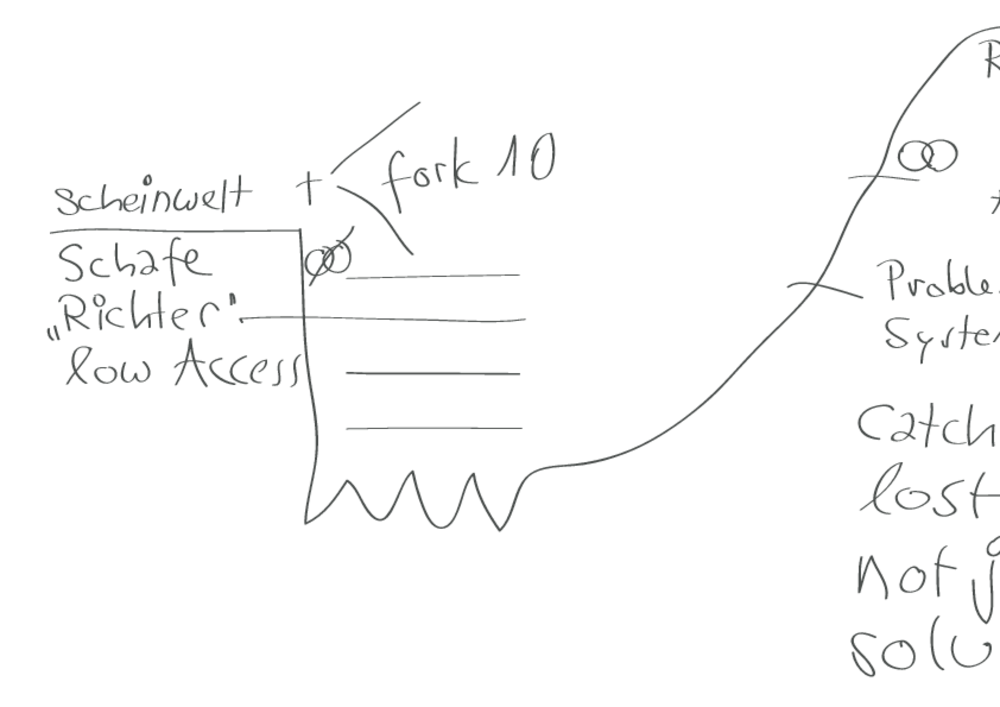 scheinwelt + fork 10
Schafe
„Richter"
low Access
R
Proble
System
Catch
lost
not j
solu